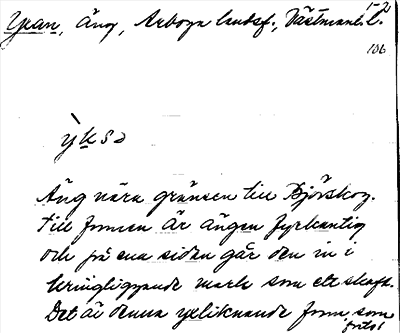 Yxan, Äng, Arboga landsf., Västmanl. l.
1-2
106
ỳksa
Äng nära gränsen till Björskog.
Till formen är ängen fyrkantig
och på ena sidan går den in i
kringliggande mark som ett skaft.
Det är denna yxliknande form, som
forts!